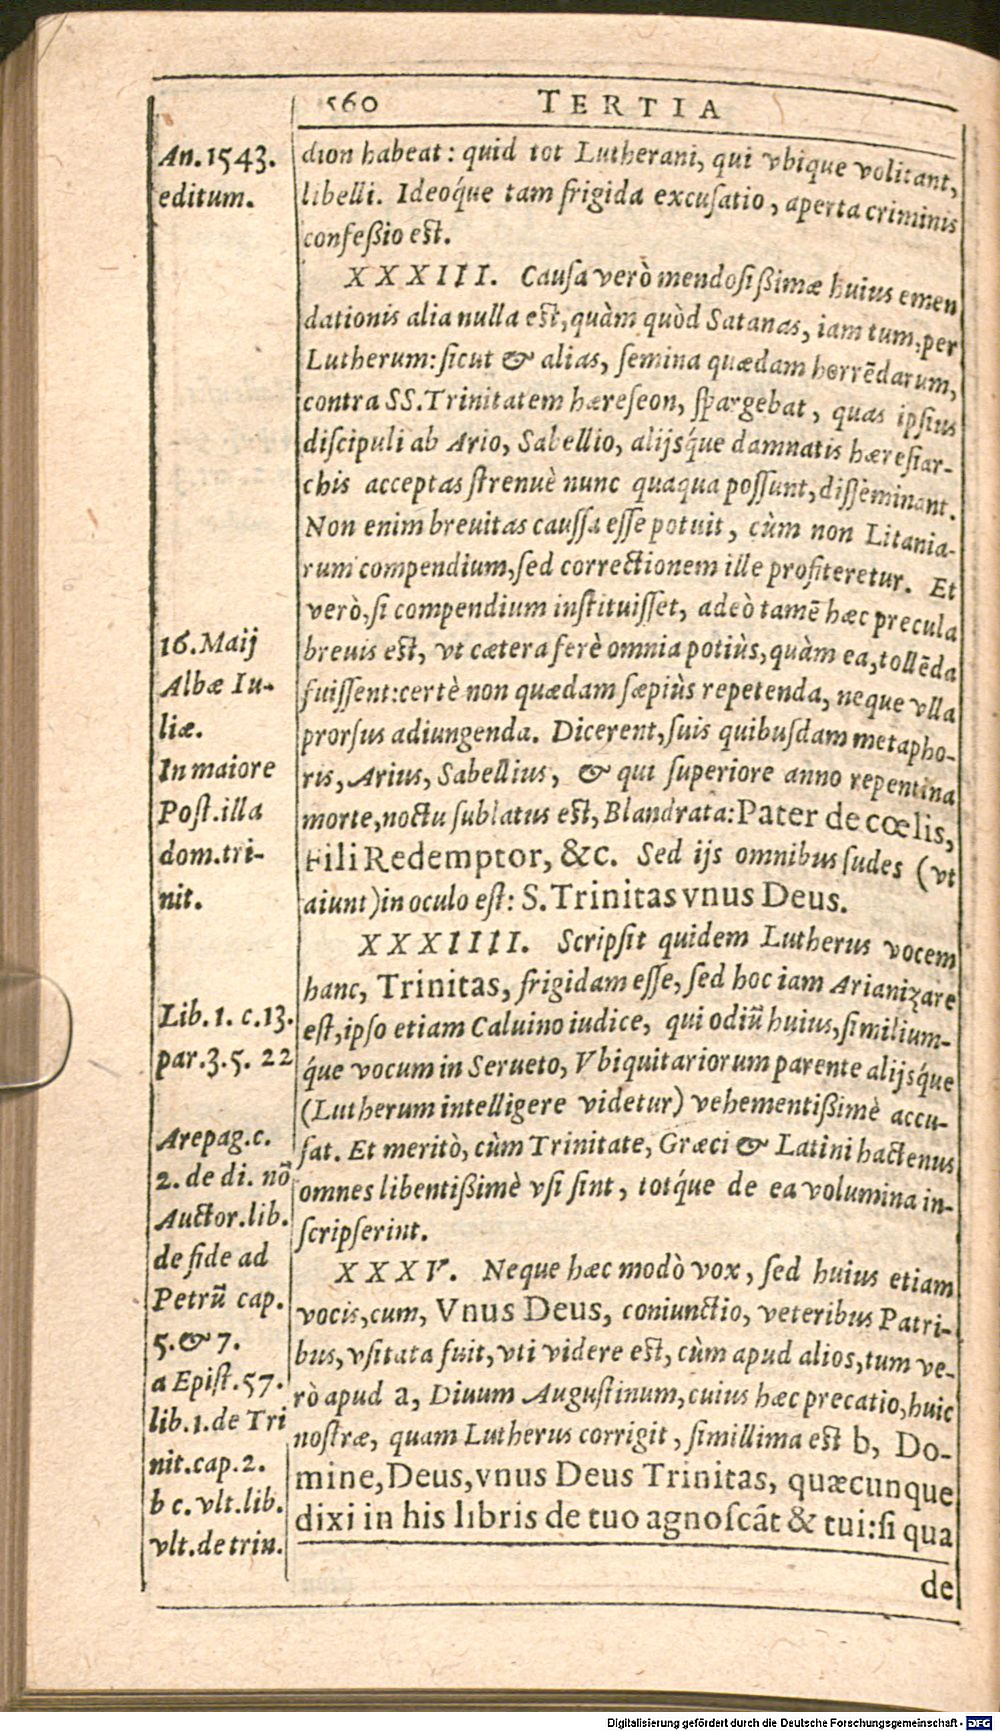 560 TERTIA
An. 1543.
editum.
dion habeat: quid tot Lutherani, qui vbique volitant,
libelli. Ideoq́ue tam frigida excuſatio, aperta criminis
confeßio eſt.
XXXIII. Cauſa verò mendoſißimæ huius emen
dationis alia nulla eſt, quàm quòd Satanas, iam tum, per
Lutherum: ſicut & alias, ſemina quædam horrẽdarum,
contra SS. Trinitatem hæreſeon, ſpargebat, quas ipſius
diſcipuli ab Ario, Sabellio, alijsq́ue damnatis hæreſiar-
chis acceptas ſtrenuè nunc quaqua poſſunt, diſſeminant.
Non enim breuitas cauſſa eſſe potuit, cùm non Litania-
rum compendium, ſed correctionem ille profiteretur. Et
verò, ſi compendium inſtituiſſet, adeò tamẽ hæc precula
breuis eſt, vt cætera ferè omnia potiùs, quàm ea, tollẽda
fuiſſent: certè non quædam ſæpiùs repetenda, neque vlla
prorſus adiungenda. Dicerent, ſuis quibuſdam metapho-
ris, Arius, Sabellius, & qui ſuperiore anno repentina
morte, noctu ſublatus eſt, Blandrata: Pater de cœlis,
Fili Redemptor, &c. Sed ijs omnibus ſudes (vt
aiunt) in oculo eſt: S. Trinitas vnus Deus.
16. Maij
Albæ Iu-
liæ.
In maiore
Poſt. illa
dom. tri-
nit.
XXXIIII. Scripſit quidem Lutherus vocem
hanc, Trinitas, frigidam eſſe, ſed hoc iam Arianizare
eſt, ipſo etiam Caluino iudice, qui odiũ huius, ſimilium-
q́ue vocum in Serueto, Vbiquitariorum parente alijsq́ue
(Lutherum intelligere videtur) vehementißimè accu-
ſat. Et meritò, cùm Trinitate, Græci & Latini hactenus
omnes libentißimè vſi ſint, totq́ue de ea volumina in-
ſcripſerint.
Lib. 1. c. 13.
par. 3. 5. 22
Arepag. c.
2. de di. nõ
Auctor. lib.
de fide ad
Petrũ cap.
5. & 7.
a Epiſt. 57.
lib. 1. de Tri
nit. cap. 2.
b c. vlt. lib.
vlt. de trin.
XXXV. Neque hæc modò vox, ſed huius etiam
vocis, cum, Vnus Deus, coniunctio, veteribus Patri-
bus, vſitata fuit, vti videre eſt, cùm apud alios, tum ve-
rò apud a, Diuum Auguſtinum, cuius hæc precatio, huic
noſtræ, quam Lutherus corrigit, ſimillima eſt b, Do-
mine, Deus, vnus Deus Trinitas, quæcunque
dixi in his libris de tuo agnoſcãt & tui: ſi qua
de
Digitalisierung gefördert durch die Deutsche Forschungsgemeinschaft - DFG